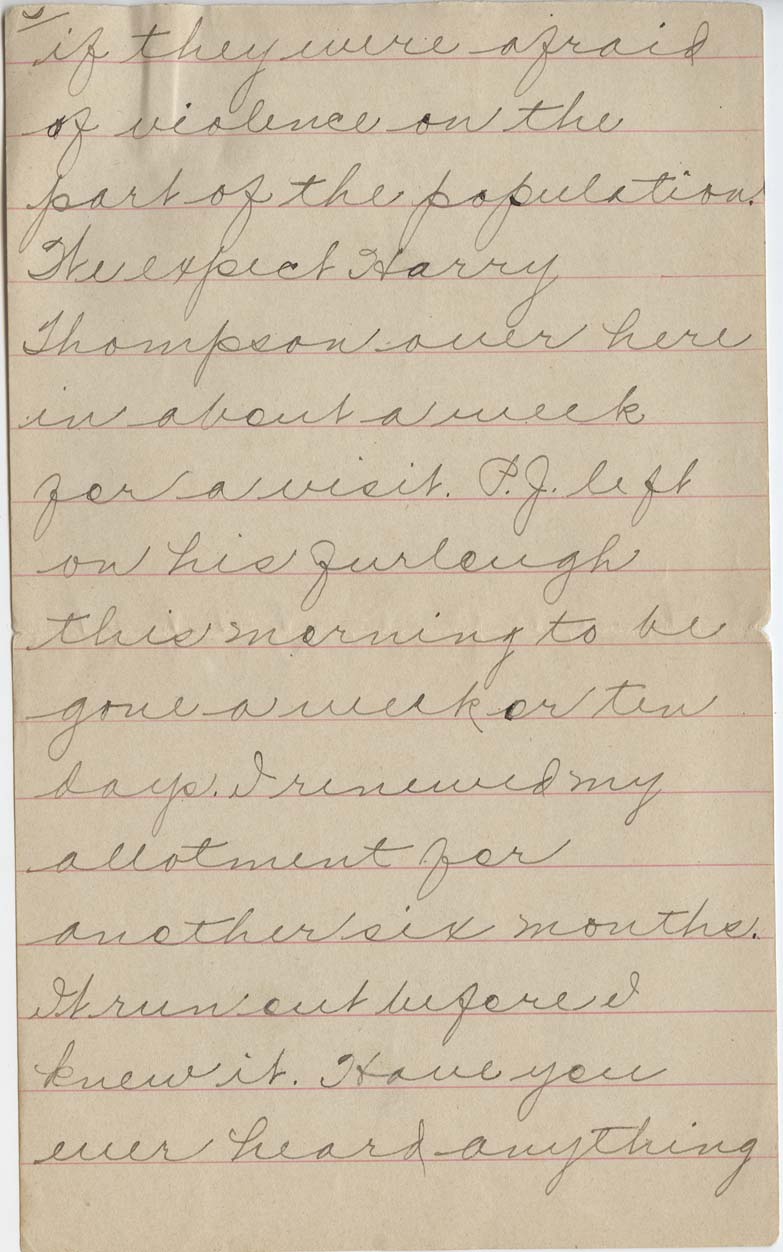 if they were afraid
of violence on the
part of the population.
We expect Harry
Thompson over here
in about a week
for a visit. P.J. left
on his furlough
this morning to be
gone a week or ten
days. I renewed my
allotment for
another six months.
It run out before I
knew it. Have you
ever heard anything